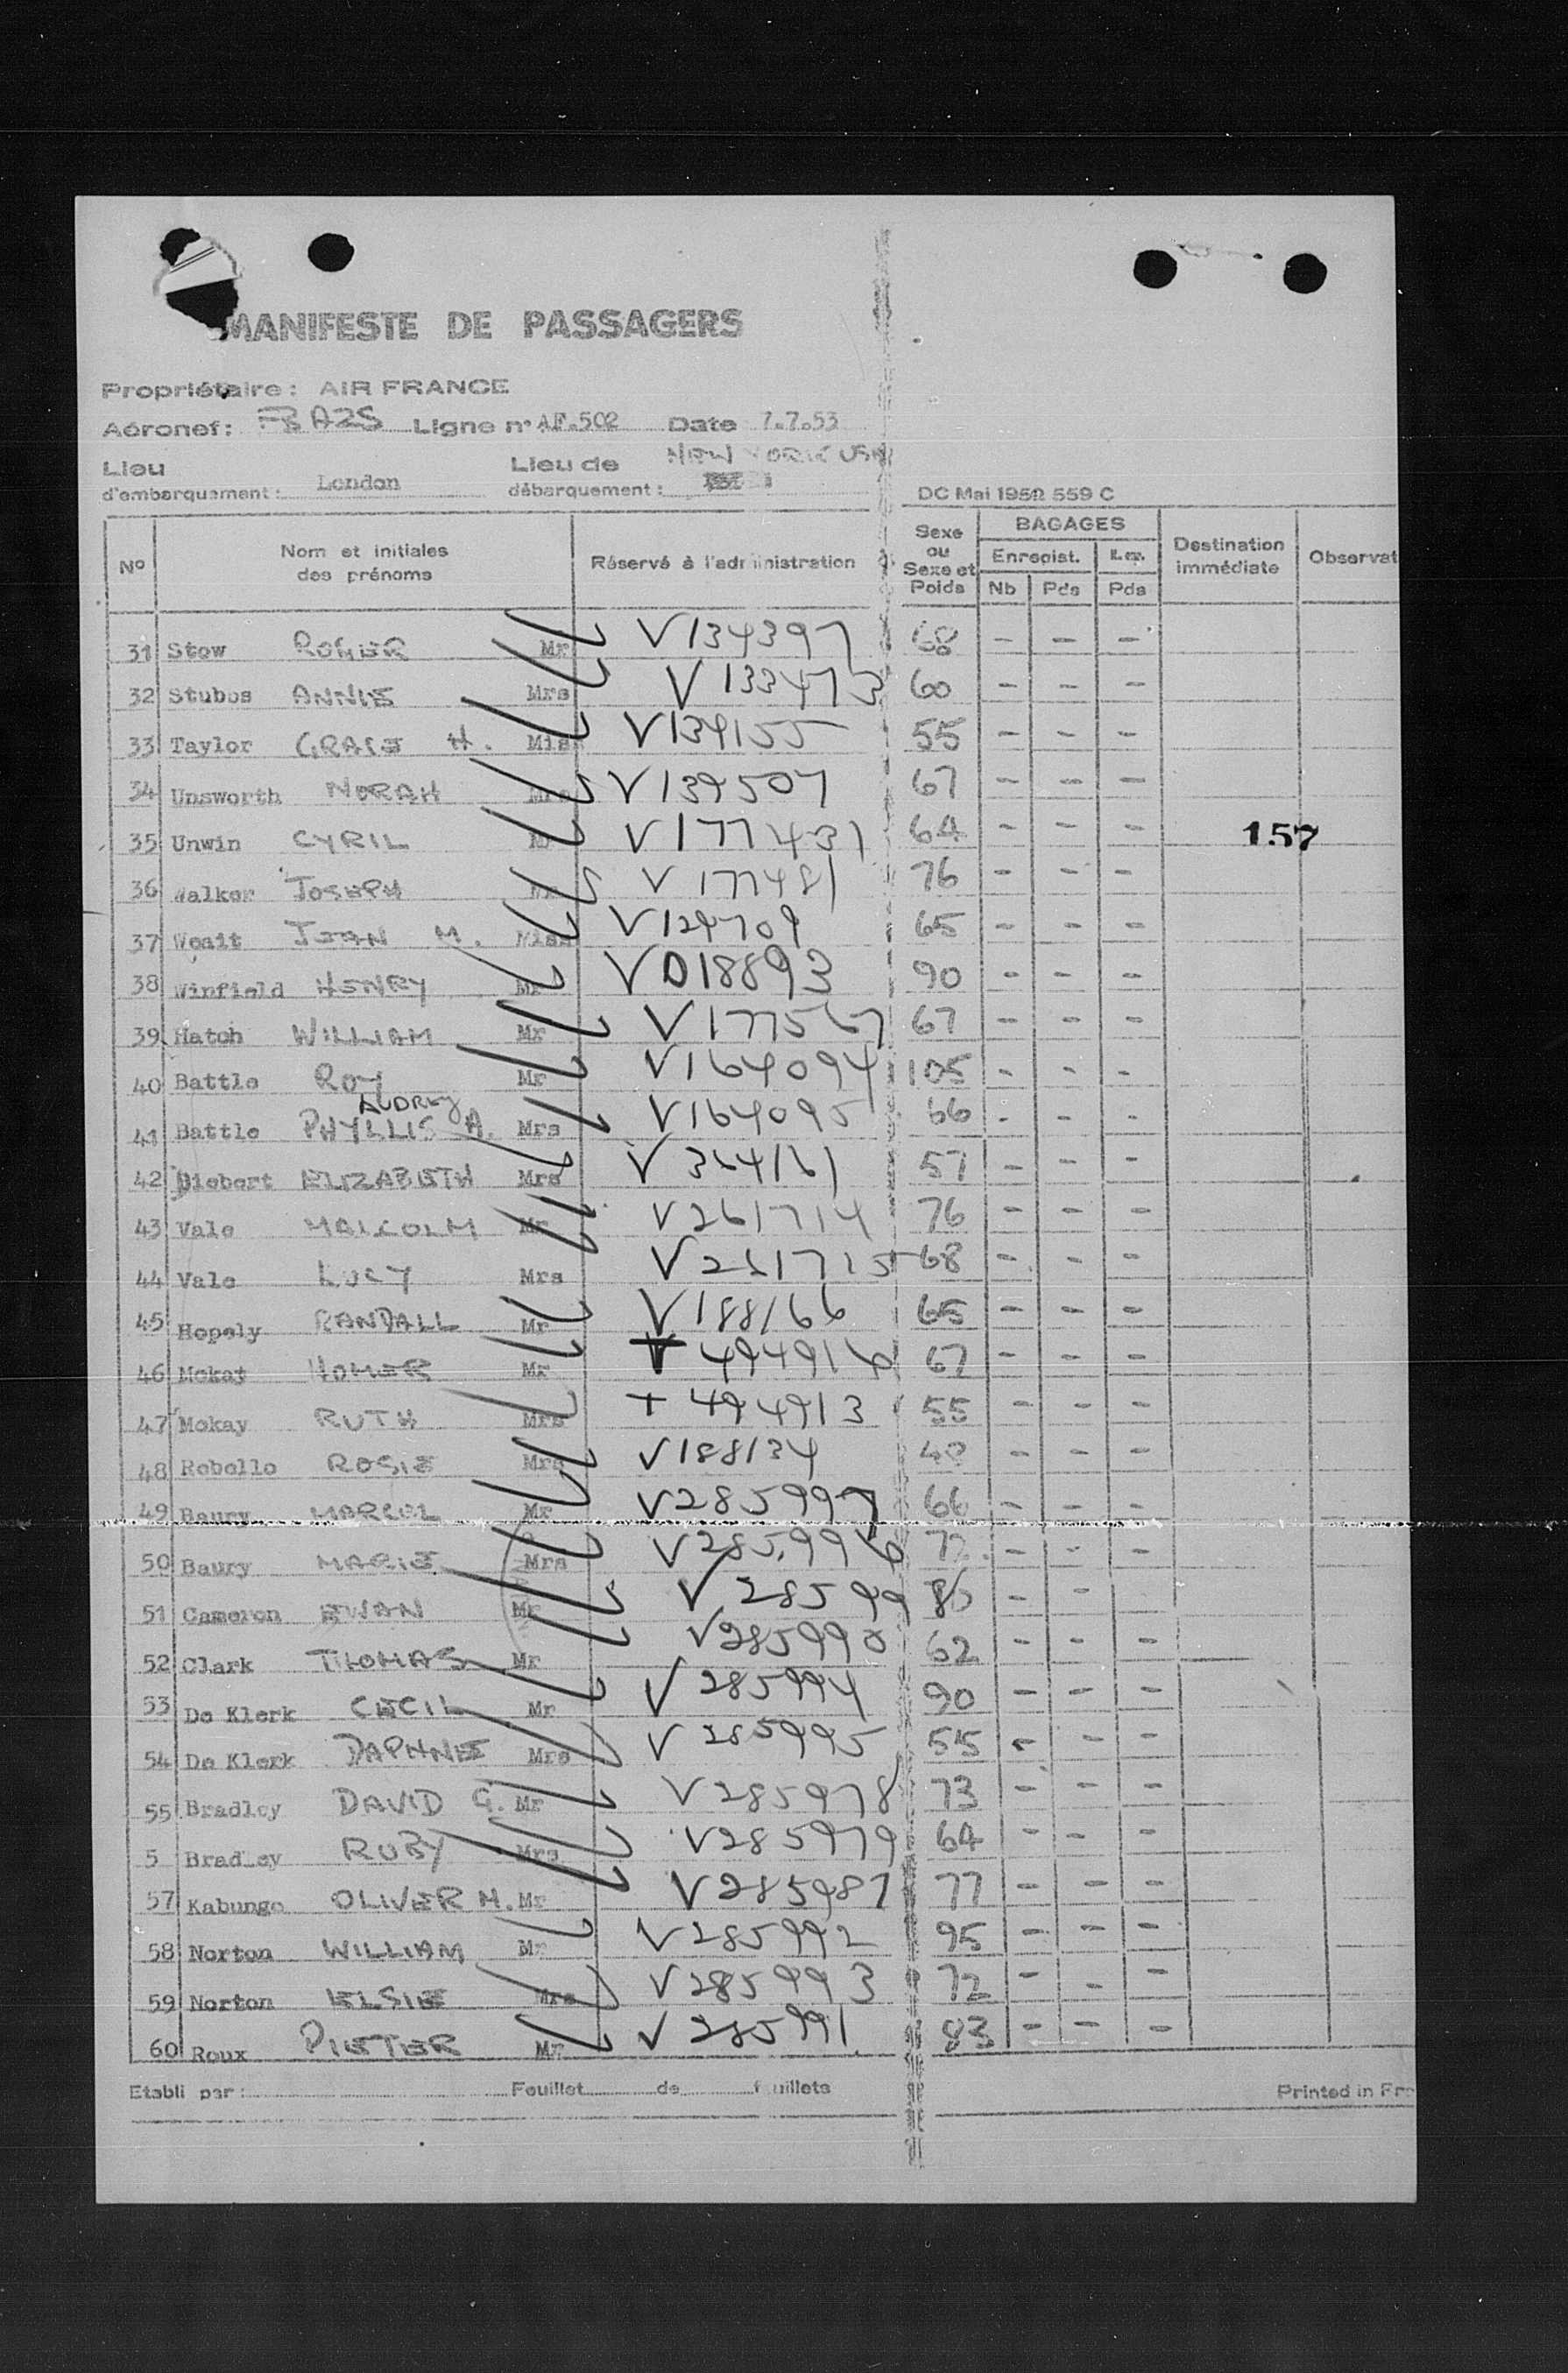 MANIFESTE DE PASSAGERS
Propriétaire : AIR FRANCE
Aéronef : Ligne n° AF.502 Date 7.7.53
NEW YORK USA
Lieu d'embarquement : London Lieu de débarquement :
DC Mai 1952 559 C
Nº Nom et initiales des prénoms Réservé à l'administration Sexe ou Sexe et Poids BAGAGES Enregist. Nb Pds Pds Destination immédiate Observat
31 Stow ROGER Mr V134397 68 - - -
32 Stubos ANNIE Mrs V133473 60 - - -
33 Taylor GRACE H. Miss V134155 55 - - -
34 Unsworth NORAH Mrs V139507 67 - - -
35 Unwin CYRIL Mr V177431 64 - - - 157
36 Walker JOSEPH Mr V177481 76 - - -
37 Weait JEAN M. Miss V129709 65 - - -
38 Winfield HENRY Mr VD18893 90 - - -
39 Hatch WILLIAM Mr V177567 67 - - -
40 Battle ROY Mr V164094 105 - - -
AUDREY
41 Battle PHYLLIS A. Mrs V164095 66 - - -
42 ELIZABETH Mrs V364161 57 - - -
43 Vale MALCOLM Mr V261714 76 - - -
44 Vale LUCY Mrs V261715 68 - - -
45 Hopely RANDALL Mr V188166 65 - - -
46 Mckay HOMER Mr 494916 67 - - -
47 Mckay RUTH Mrs + 494913 55 - - -
48 Rebello ROSIE Mrs V188134 - - -
49 Baury MARCEL Mr V285997 66 - - -
50 Baury MARIE Mrs V285996 72 - - -
51 Cameron EWAN Mr - -
52 Clark THOMAS Mr V285990 62 - - -
53 De Klerk CECIL Mr V285994 90 - - -
54 De Klerk DAPHNE Mrs V285995 55 - - -
55 Bradley DAVID G. Mr V285978 73 - - -
5 Bradley RUBY Mrs V285979 64 - - -
57 Kabungo OLIVER M. Mr V285987 77 - - -
58 Norton WILLIAM Mr V285992 95 - - -
59 Norton ELSIE Mrs V285993 72 - - -
60 Roux PIETER Mr V285991 83 - - -
Etabli par : Feuillet de feuillets Printed in Fra